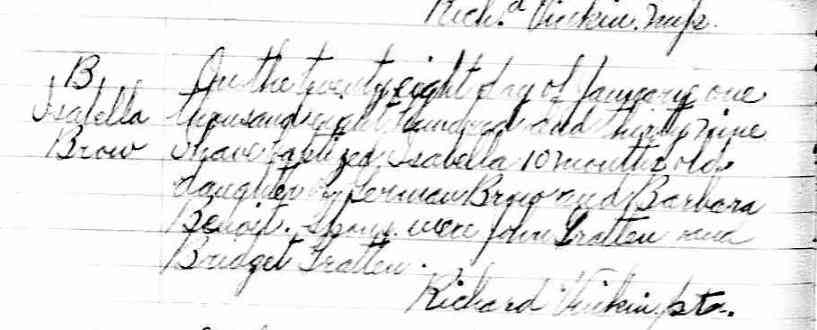 Rich.d
B. On the twenty eight day of January one
Isabella thousand eight hundred and thirty nine
Brow I have baptized Isabella 10 months old
daughter of Brow and Barbara
Benoit. Spons. were John Gratten and
Bridget Gratten.
Richard